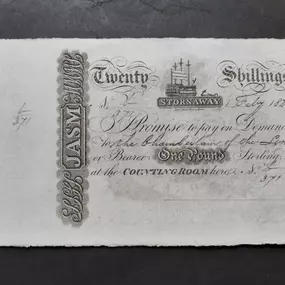 Twenty Shillings
STORNAWAY
JASM
£ Feby 182
371
I Promise to pay on Demand
to the Chamberlain of the
or Bearer One Pound Sterling
at the COUNTING ROOM here £
371